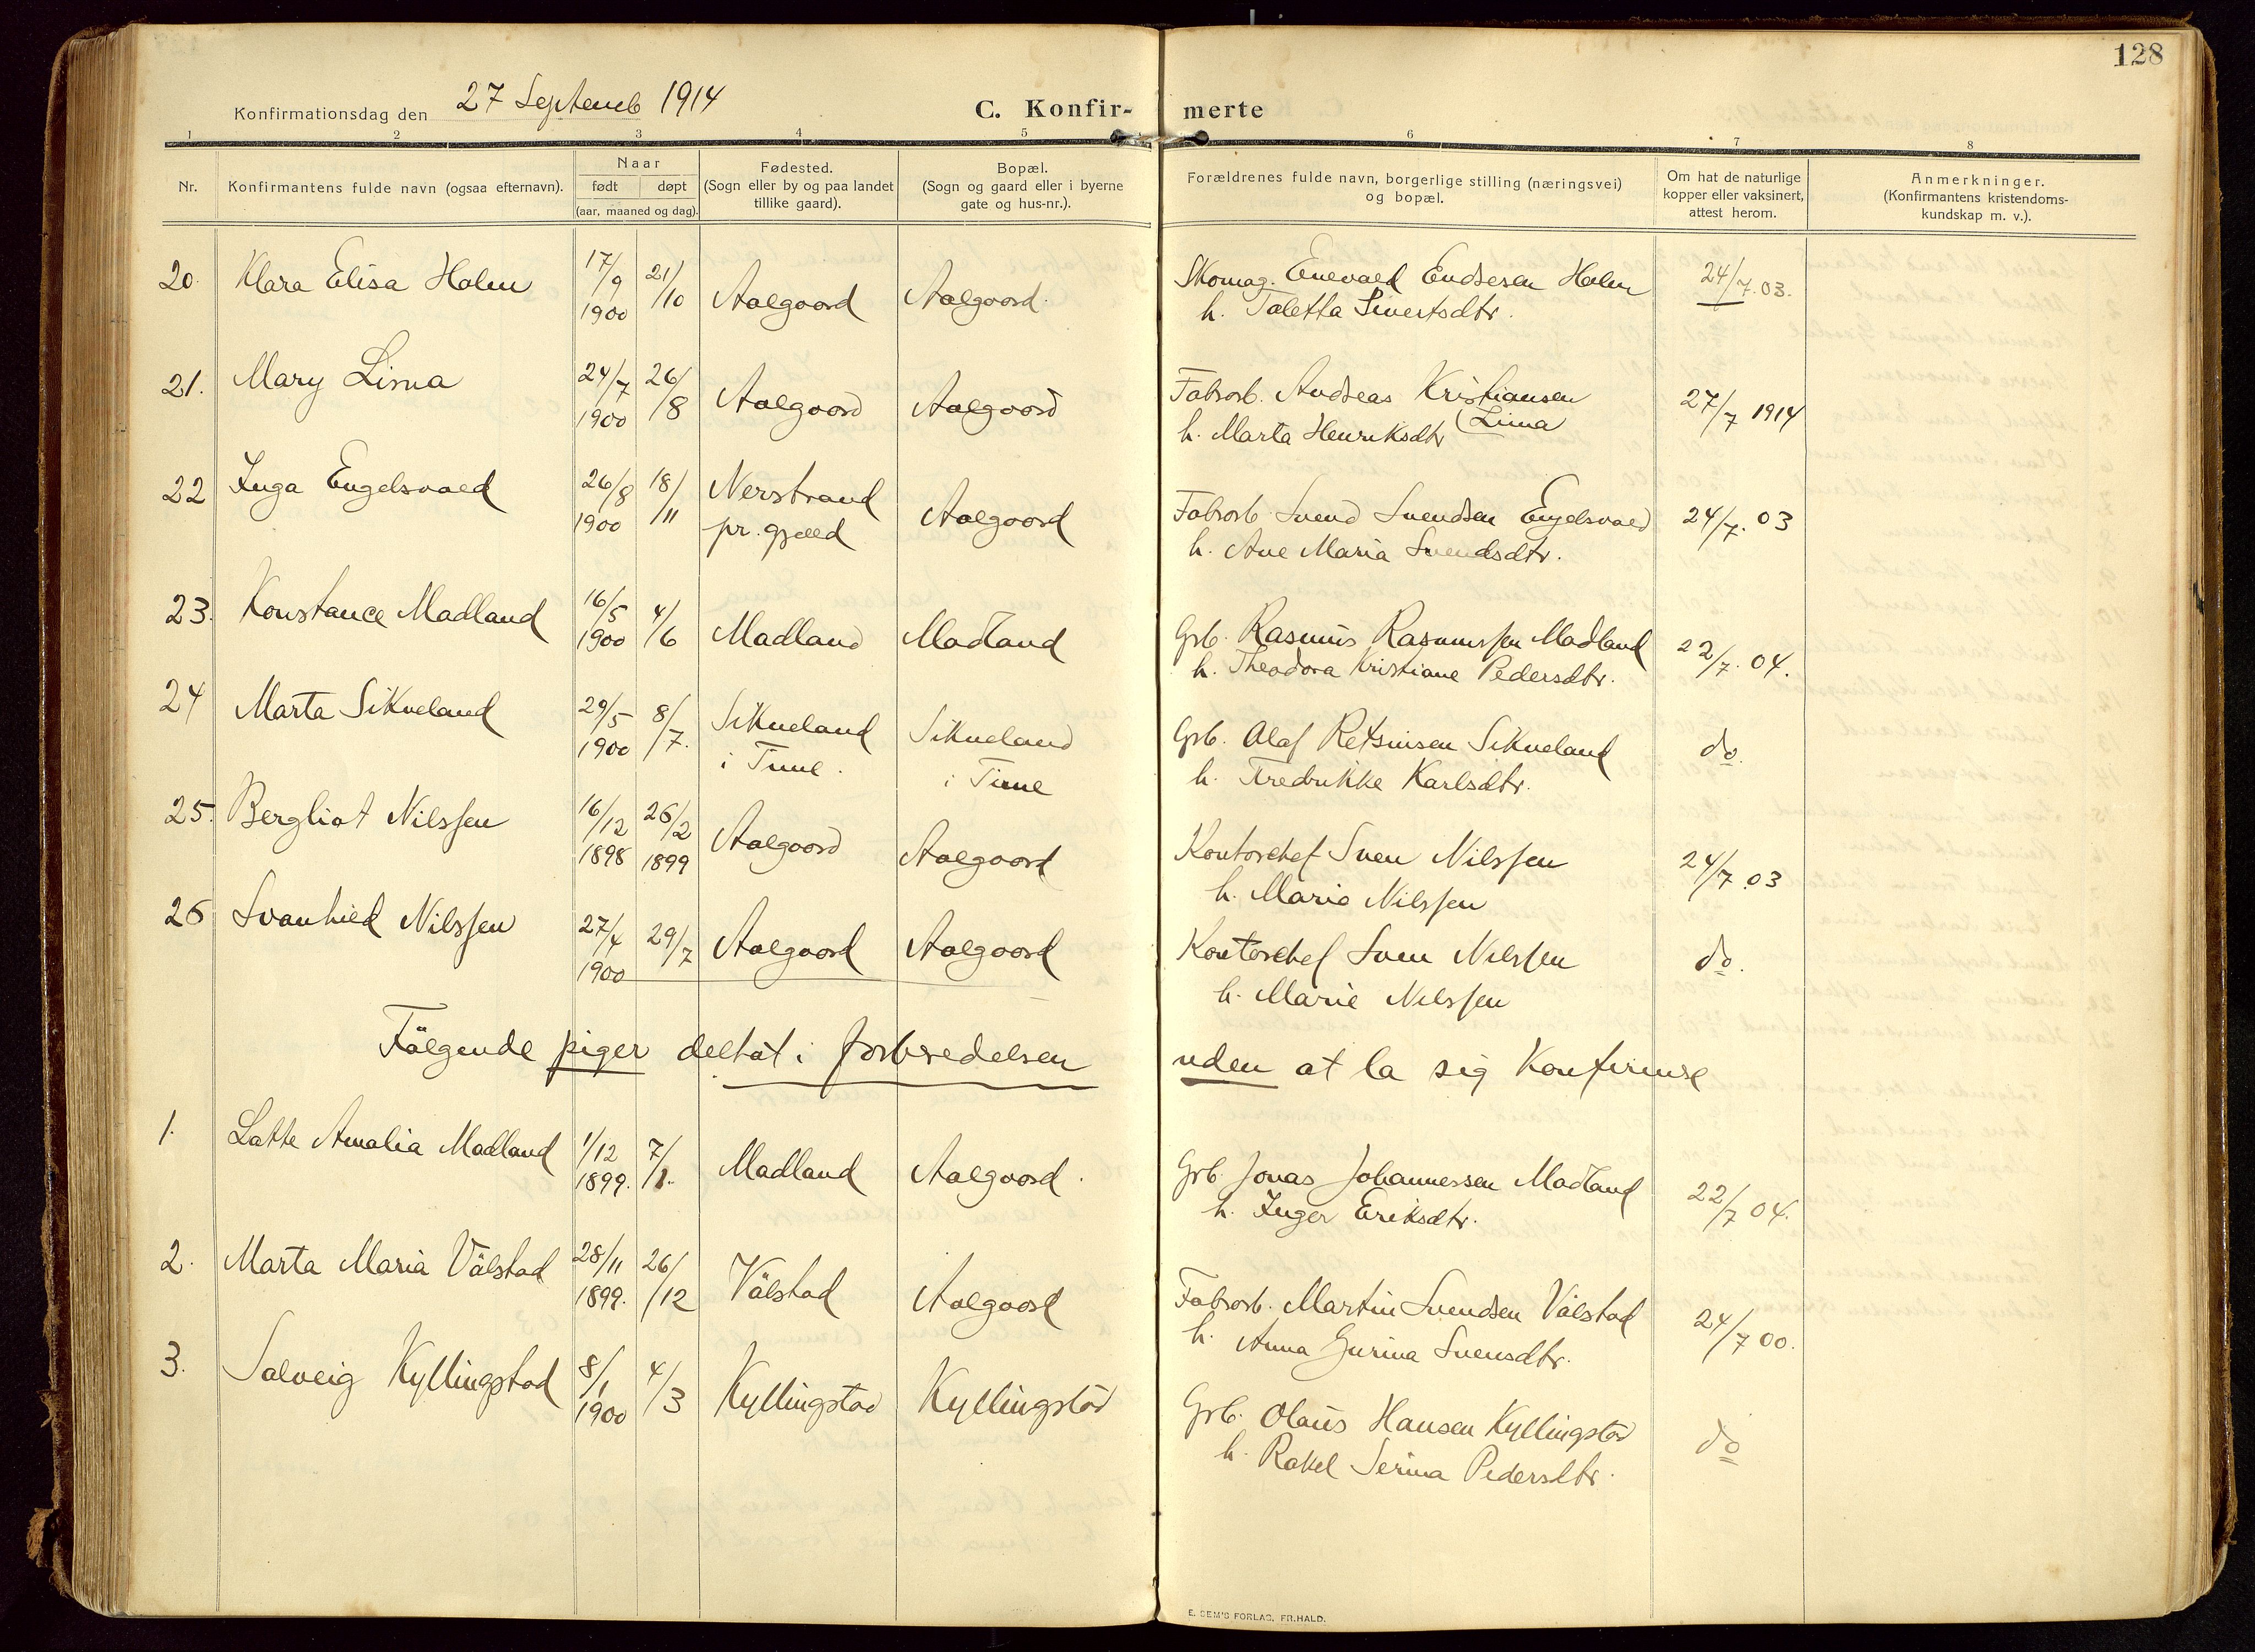 128
Konfirmationsdag den 27 Septemb 1914
C. Konfir- merte
1 2 3 4 5 6 7 8
Nr. Konfirmantens fulde navn (ogsaa efternavn). Naar født døpt (aar, maaned og dag). Fødested. (Sogn eller by og paa landet tillike gaard). Bopæl. (Sogn og gaard eller i byerne gate og hus-nr.). Forældrenes fulde navn, borgerlige stilling (næringsvei) og bopæl. Om hat de naturlige kopper eller vaksinert, attest herom. Anmerkninger. (Konfirmantens kristendoms-kundskap m. v.).
20. Klara Elisa Holm 17/9 1900 21/10 Aalgaard Aalgaard. Skomag. Enevald Endresen Holm 24/7.03.
h. Taletta Sivertsdtr.
21. Mary Lima 24/7 1900 26/8 Aalgaard Aalgaard Fabrarb. Andreas Kristiansen (Lima 27/7 1914
h. Marta Henriksdtr
22 Inga Engelsvold 26/8 1900 18/11 Nerstrand pr. gjeld Aalgaard Fabrarb. Svend Svendsen Engelsvold 24/7. 03
h. Ane Maria Svendsdtr.
23. Konstance Madland 16/5 1900 4/6 Madland Madland Grb. Rasmus Rasmussen Madland 22/7. 04.
h. Theodora Kristiane Pedersdtr.
24 Marta Sikveland 29/5 1900 8/7. Sikveland i Time. Sikveland i Time Grb. Olaf Reisinsen Sikveland do.
h. Fredrikke Karlsdtr.
25. Bergliot Nilssen 16/12 1898 26/2 1899 Aalgaard Aalgaard Kontorchef Sven Nilssen 24/7.03
h. Marie Nilssen
26 Svanhild Nilssen 27/4 1900 29/7 Aalgaard Aalgaard Kontorchef Sven Nilssen do.
h. Marie Nilssen
Følgende piger deltat i forberedelsen uden at la sig konfirmere
1. Lotte Amalia Madland 1/12 1899. 7/1. Madland Aalgaard. Grb. Jonas Johannessen Madland 22/7 04.
h. Inger Eriksdtr.
2. Marta Maria Vålstad 28/11 1899. 26/12 Vålstad Aalgaard Fabrarb. Martin Svendsen Vålstad 24/7 00.
h. Anna Gurina Svensdtr.
3. Solveig Kyllingstad 8/1 1900 4/3 Kyllingstad Kyllingstad Grb. Olaus Hansen Kyllingstad do
h. Rakel Serina Pedersdtr.
E. SEM'S FORLAG, FR.HALD.